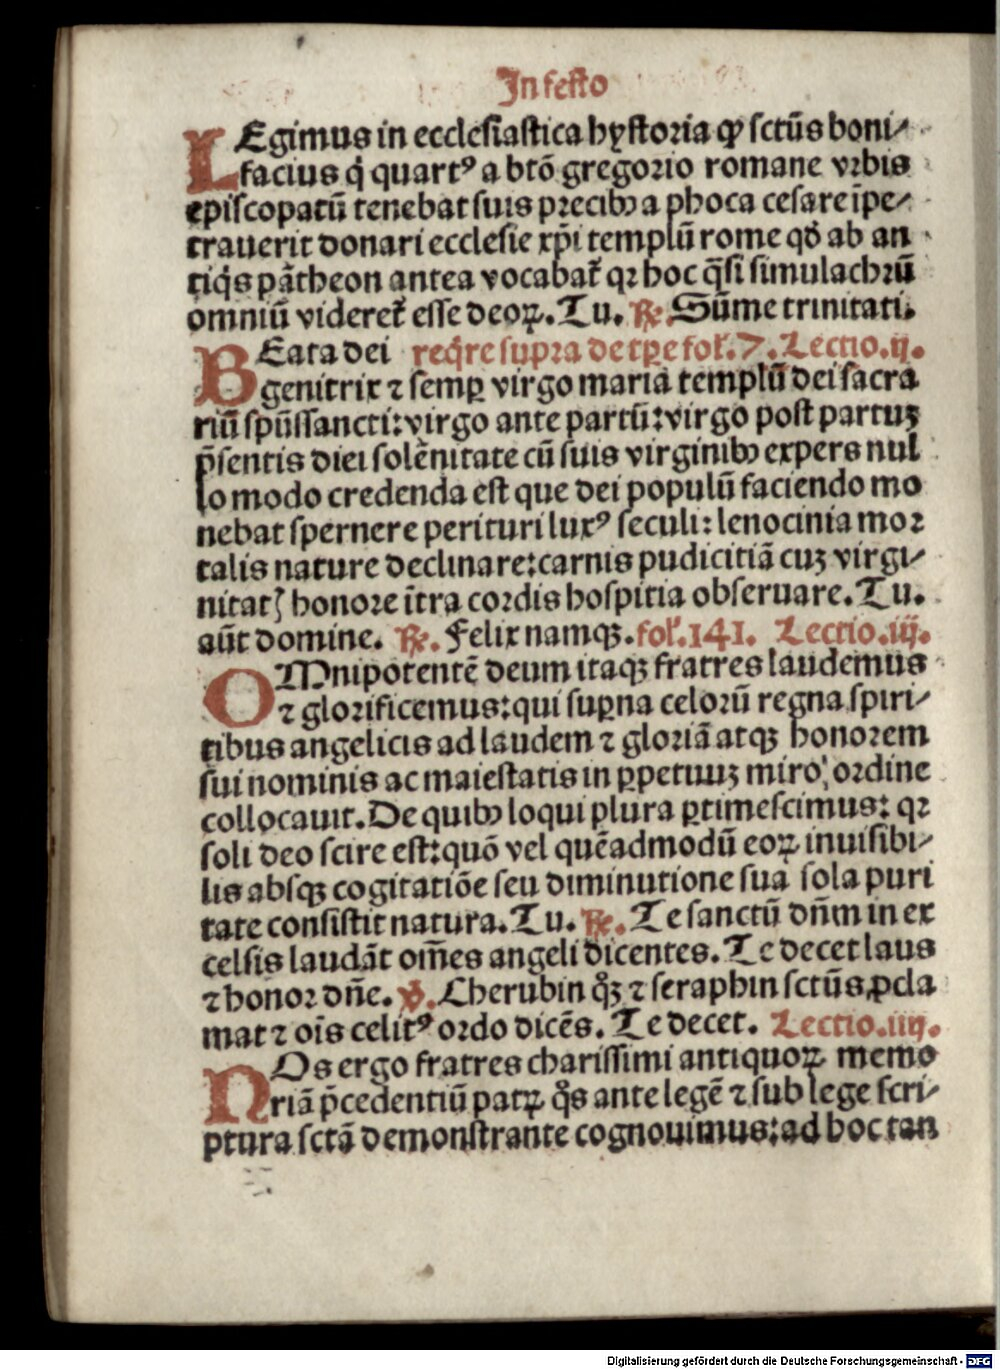 In festo
LEgimus in ecclesiastica hystoria ꝙ sctūs boni⸗
facius q̇ quartꝰ a btō gregorio romane vrbis
episcopatū tenebat suis precibꝫ a phoca cesare īpe⸗
trauerit donari ecclesie xp̄i templū rome qđ ab an
tiq̇s pātheon antea vocabat̄ qꝛ hoc q̄si simulachrū
omniū videret̄ esse deoꝝ. Tu. ℟. Sūme trinitati.
BEata dei req̇re supra de tꝑe fol. 7. Lectio.ij.
genitrix ⁊ semꝑ virgo maria templū dei sacra
riū spūssancti: virgo ante partū: virgo post partuꝫ
p̄sentis diei solēnitate cū suis virginibꝫ expers nul
lo modo credenda est que dei populū faciendo mo
nebat spernere perituri luxꝰ seculi: lenocinia mor
talis nature declinare: carnis pudicitiā cuꝫ virgi⸗
nitatꝭ honore ītra cordis hospitia obseruare. Tu.
aūt domine. ℟. Felix namqꝫ. fol. 141. Lectio.iij.
OMnipotentē deum itaqꝫ fratres laudemus
⁊ glorificemus: qui suꝑna celorū regna spiri⸗
tibus angelicis ad laudem ⁊ gloriā atqꝫ honorem
sui nominis ac maiestatis in ꝑpetuuꝫ miro ordine
collocauit. De quibꝫ loqui plura ꝑtimescimus: qꝛ
soli deo scire est: quō vel quēadmodū eoꝝ inuisibi⸗
lis absqꝫ cogitatiōe seu diminutione sua sola puri
tate consistit natura. Tu. ℟. Te sanctū dn̄m in ex
celsis laudāt om̄es angeli dicentes. Te decet laus
⁊ honor dn̄e. ℣. Cherubin qͦꝫ ⁊ seraphin sctūs ꝓcla
mat ⁊ oīs celitꝰ ordo dicēs. Te decet. Lectio.iiij.
NOs ergo fratres charissimi antiquoꝝ memo
riā p̄cedentiū patꝝ qͦs ante legē ⁊ sub lege scri⸗
ptura sctā demonstrante cognouimus: ad hoc tan
Digitalisierung gefördert durch die Deutsche Forschungsgemeinschaft - DFG